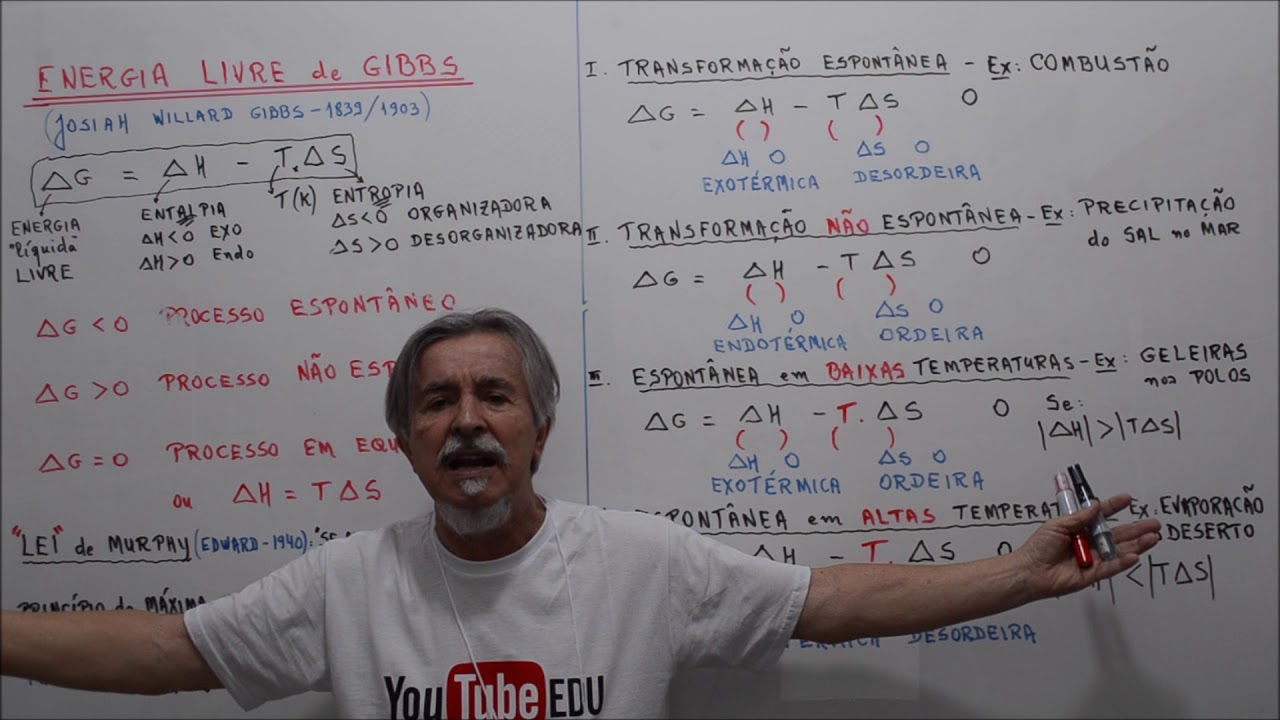 ENERGIA LIVRE de GIBBS
(JOSIAH WILLARD GIBBS - 1839/1903)
ΔG = ΔH - T.ΔS
ENERGIA "líquida" LIVRE
ENTALPIA
ΔH<0 EXO
ΔH>0 Endo
T(K)
ENTROPIA
ΔS<0 ORGANIZADORA
ΔS>0 DESORGANIZADORA
ΔG<0 PROCESSO ESPONTÂNEO
ΔG>0 PROCESSO NÃO ESP
ΔG=0 PROCESSO EM EQU
ou ΔH = TΔS
"LEI" de MURPHY (EDWARD-1940): "SE
PRINCÍPIO da MÁXIMA
I. TRANSFORMAÇÃO ESPONTÂNEA - Ex: COMBUSTÃO
ΔG = ΔH - T ΔS 0
( ) ( )
ΔH 0 ΔS 0
EXOTÉRMICA DESORDEIRA
II. TRANSFORMAÇÃO NÃO ESPONTÂNEA - Ex: PRECIPITAÇÃO
do SAL no MAR
ΔG = ΔH - T ΔS 0
( ) ( )
ΔH 0 ΔS 0
ENDOTÉRMICA ORDEIRA
III. ESPONTÂNEA em BAIXAS TEMPERATURAS - Ex: GELEIRAS
nos POLOS
ΔG = ΔH - T. ΔS 0 Se:
|ΔH|>|TΔS|
( ) ( )
ΔH 0 ΔS 0
EXOTÉRMICA ORDEIRA
ESPONTÂNEA em ALTAS TEMPERAT Ex: EVAPORAÇÃO
DESERTO
ΔH - T. ΔS 0
<|TΔS|
DESORDEIRA
YouTube EDU